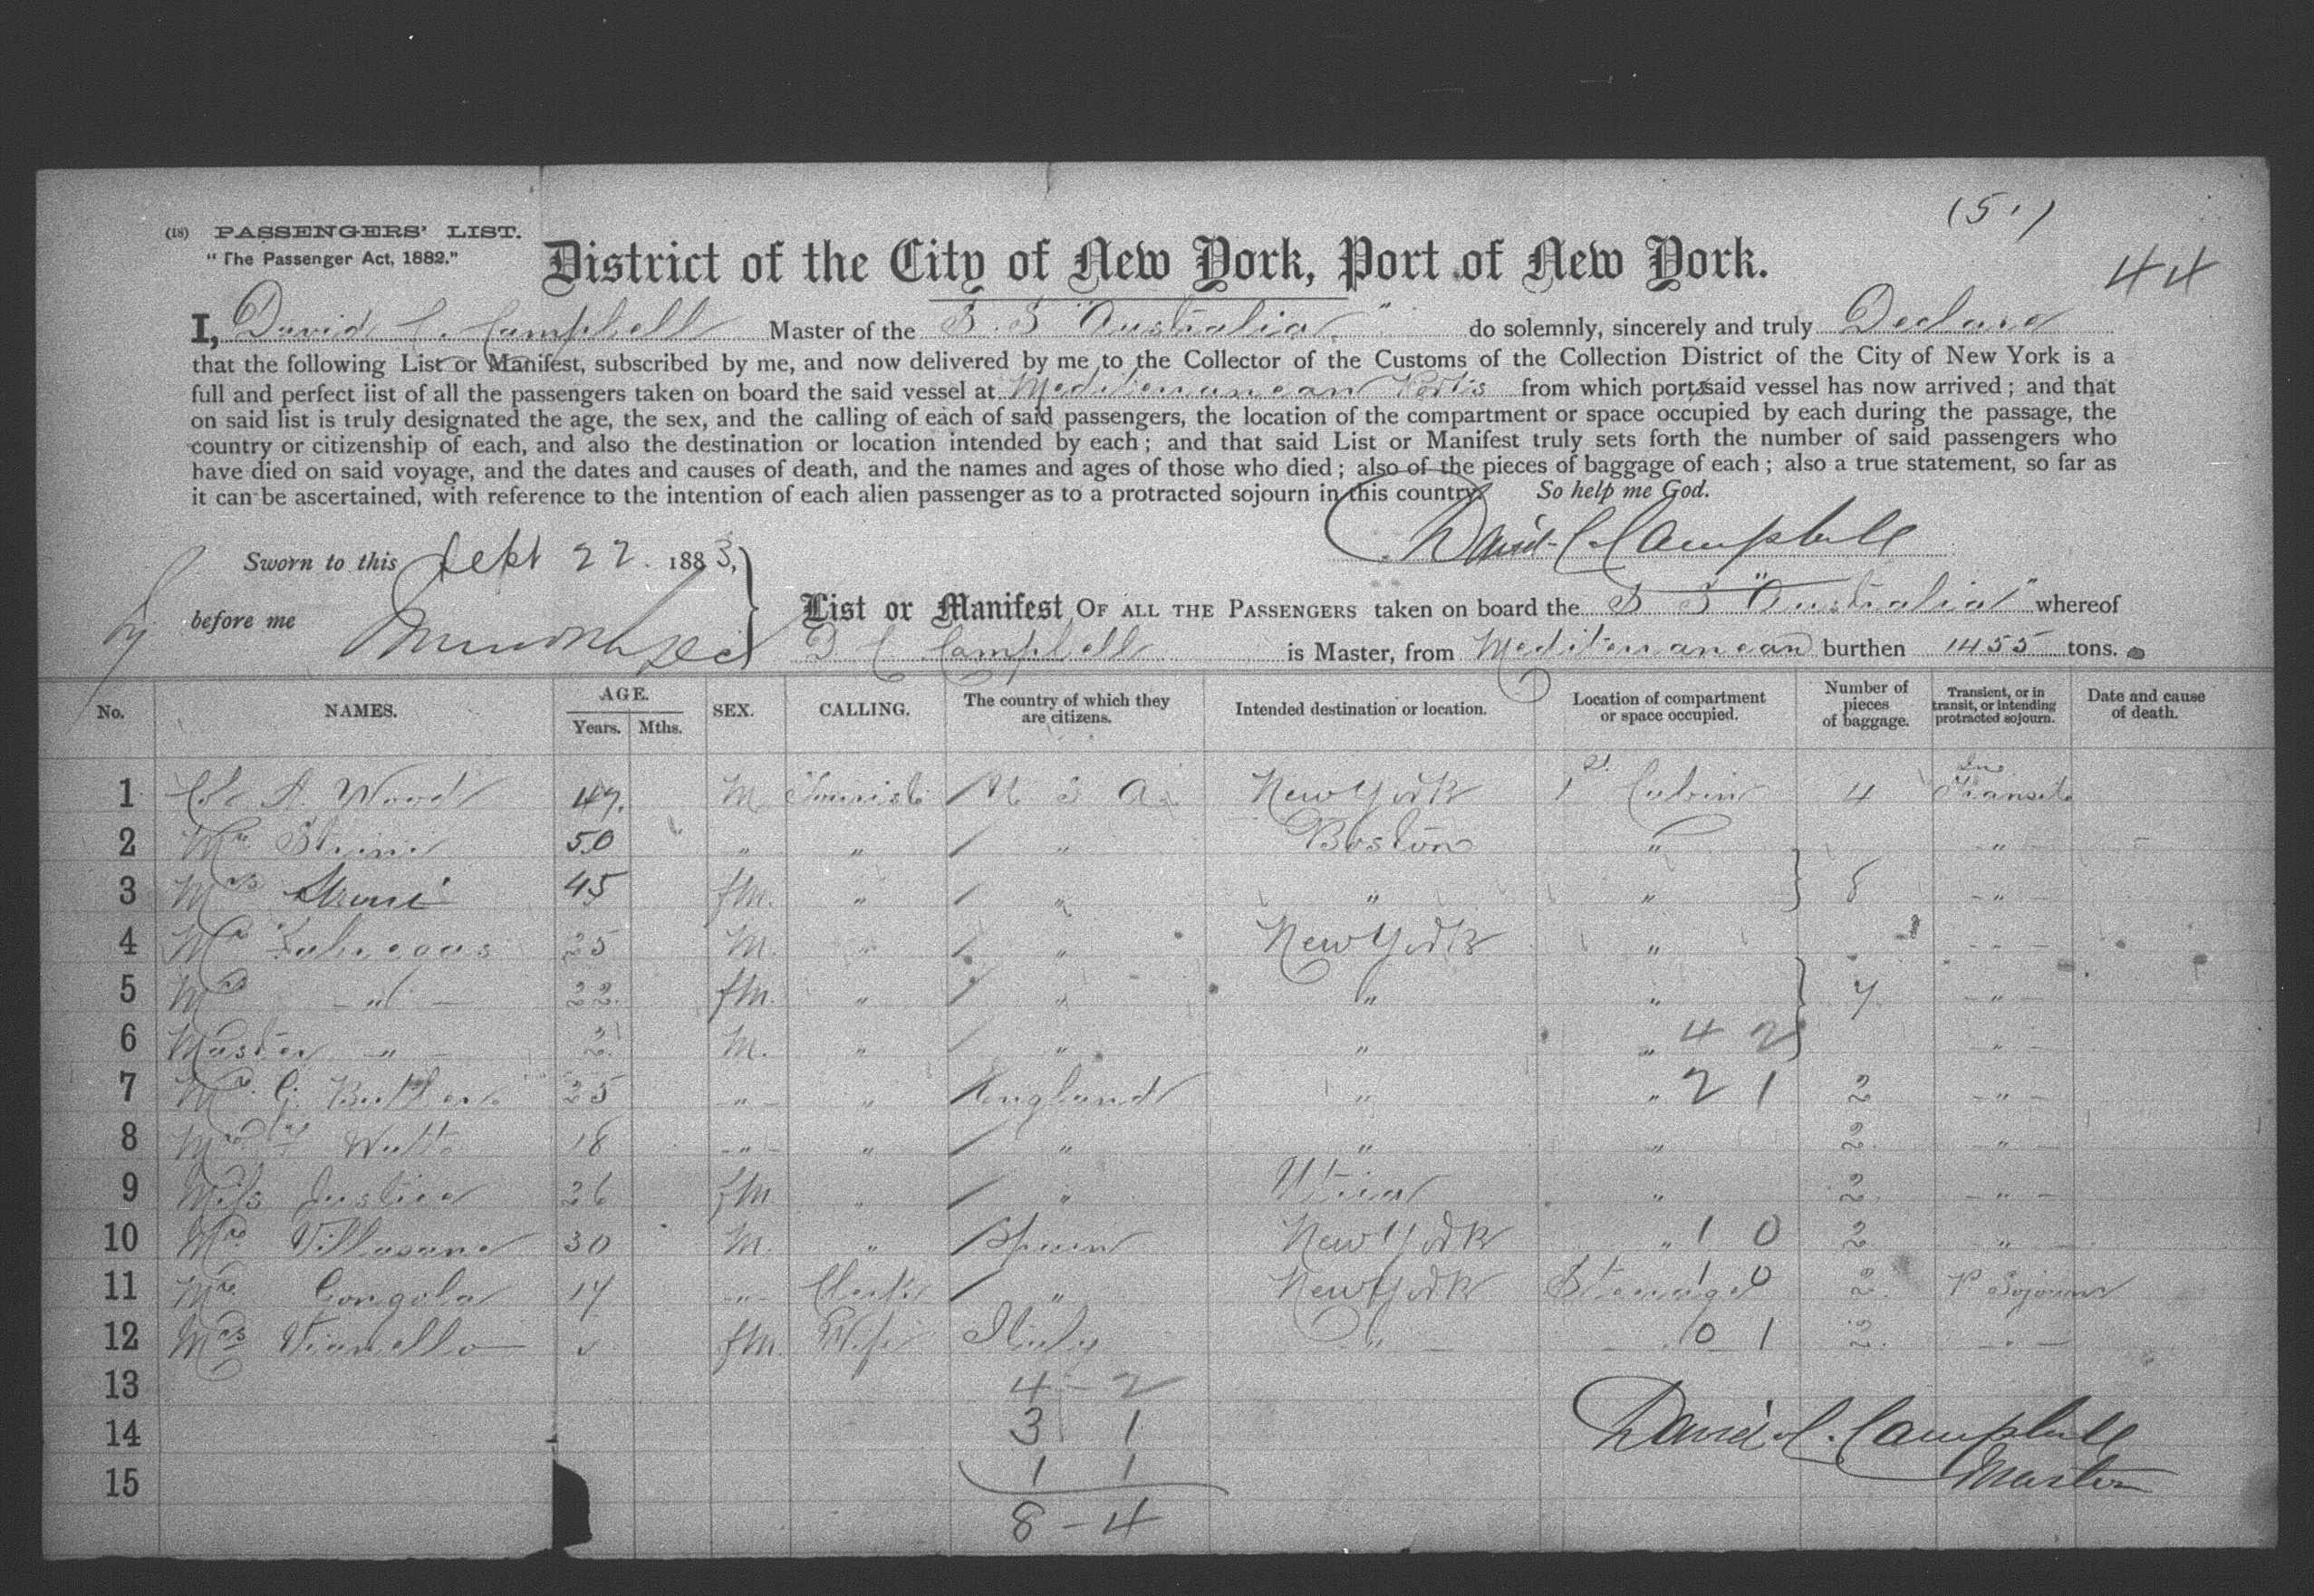 (51)
44
(18) PASSENGERS' LIST.
"The Passenger Act, 1882."
District of the City of New York, Port of New York.
I, David C. Campbell Master of the S. S "Australia" do solemnly, sincerely and truly Declare
that the following List or Manifest, subscribed by me, and now delivered by me to the Collector of the Customs of the Collection District of the City of New York is a
full and perfect list of all the passengers taken on board the said vessel at Mediterranean Ports from which ports said vessel has now arrived; and that
on said list is truly designated the age, the sex, and the calling of each of said passengers, the location of the compartment or space occupied by each during the passage, the
country or citizenship of each, and also the destination or location intended by each; and that said List or Manifest truly sets forth the number of said passengers who
have died on said voyage, and the dates and causes of death, and the names and ages of those who died; also of the pieces of baggage of each; also a true statement, so far as
it can be ascertained, with reference to the intention of each alien passenger as to a protracted sojourn in this country. So help me God.
David C Campbell
Sworn to this Sept 22. 1883,
before me
List or Manifest OF ALL THE PASSENGERS taken on board the S S "Australia" whereof
D C Campbell is Master, from Mediterranean burthen 1455 tons.
No. NAMES. AGE. Years. Mths. SEX. CALLING. The country of which they are citizens. Intended destination or location. Location of compartment or space occupied. Number of pieces of baggage. Transient, or in transit, or intending protracted sojourn. Date and cause of death.
1 A. Wood 49. M. Tourist U S A. New York 1st Cabin 4 In Transit
2 Mr. 50 " " " Boston " "
3 Mrs 45 fM. " " " " 8 "
4 Mr 25 M. " " New York "
5 Mrs " 22. fM. " " " " 4 "
6 Master " 2. M. " " " " 4 2 "
7 Mr. G. Butler 25 " " England " " 2 1 2 "
8 18 " " " " " 2. "
9 Miss Justice 26 fM " " Utica " 2. "
10 Mr. Villasana 30 M. " Spain New York " 1 0 2 "
11 Mr. Gongola 17 " Clerk " New York Steerage 1 0 2. P Sojourn
12 Mrs Vianello fM. Wife Italy " 0 1 2. "
13 4 - 2
14 3 1
15 1 1
8 - 4
David C. Campbell
Master